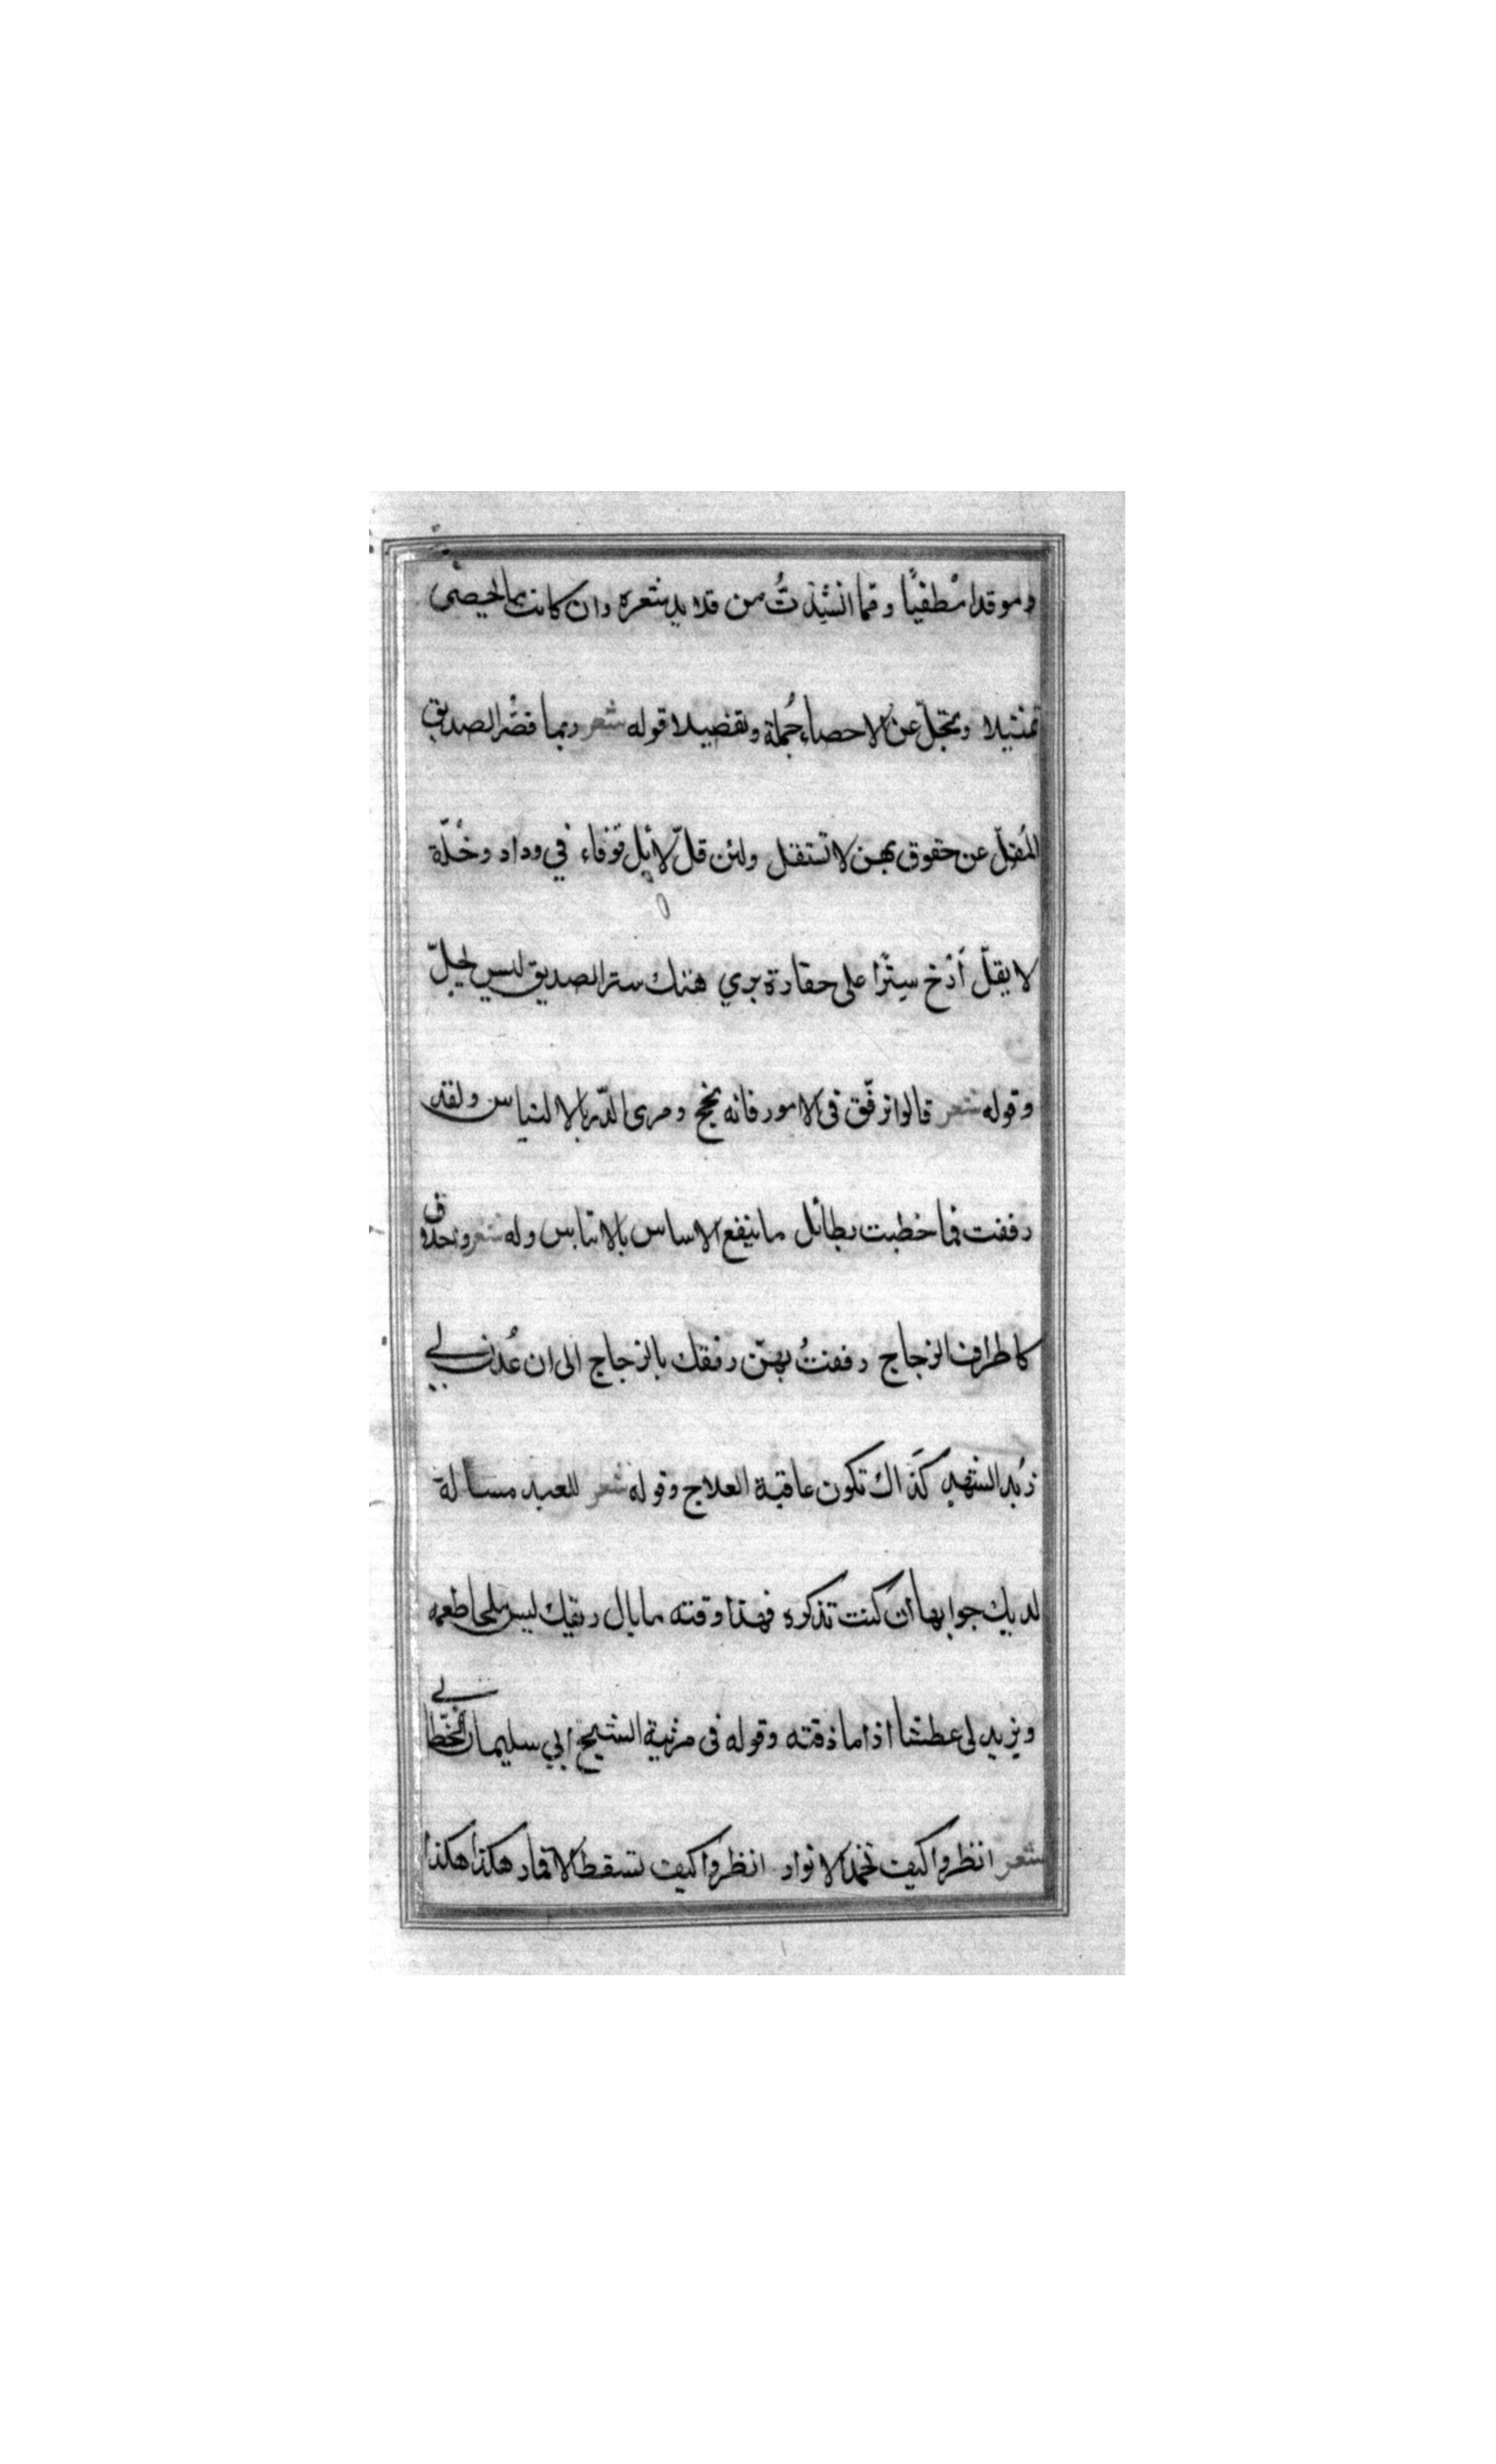 وموقدا مطفيًا وقما انشدتُ من قلايد شعره وان كانت بما لحيصى
تمثيلا وتجلّ عن الاحصاء جُملة وتفضيلا قوله شعر ربما قصّر الصديق
المُقلّ عن حقوق بهن لا تستقل ولئن قلّ لايل فوفاء في وداد وخُلّة
لا يقلّ أذخ سِترًا على حقارة بري هتك ستر الصديق ليس لحيلّ
وقوله شعر قالوا ترفّق فى الامور فانه نجح ومرى الدّر بالالنياس ولقد
رفقت فما خطبت بطائل ما ينفع الاساس بالاتياس وله شعر وتحدق
كاطراف الزجاج رفقتُ بهن رفقك بالزجاج الى ان عُدن لي
زُبد الشهد كذاك تكون عاقبة العلاج وقوله شعر للعبد مسالة
لديك جوابها ان كنت تذكره فهذا وقته ما بال ريقك ليس ملحا طعمه
ويزيد لى عطشا اذا ما ذقته وقوله فى مرثية الشيخ ابي سليمان الخطّابي
شعر انظروا كيف تخمد الانوار انظروا كيف تسقط الاقمار هكذا هكذا